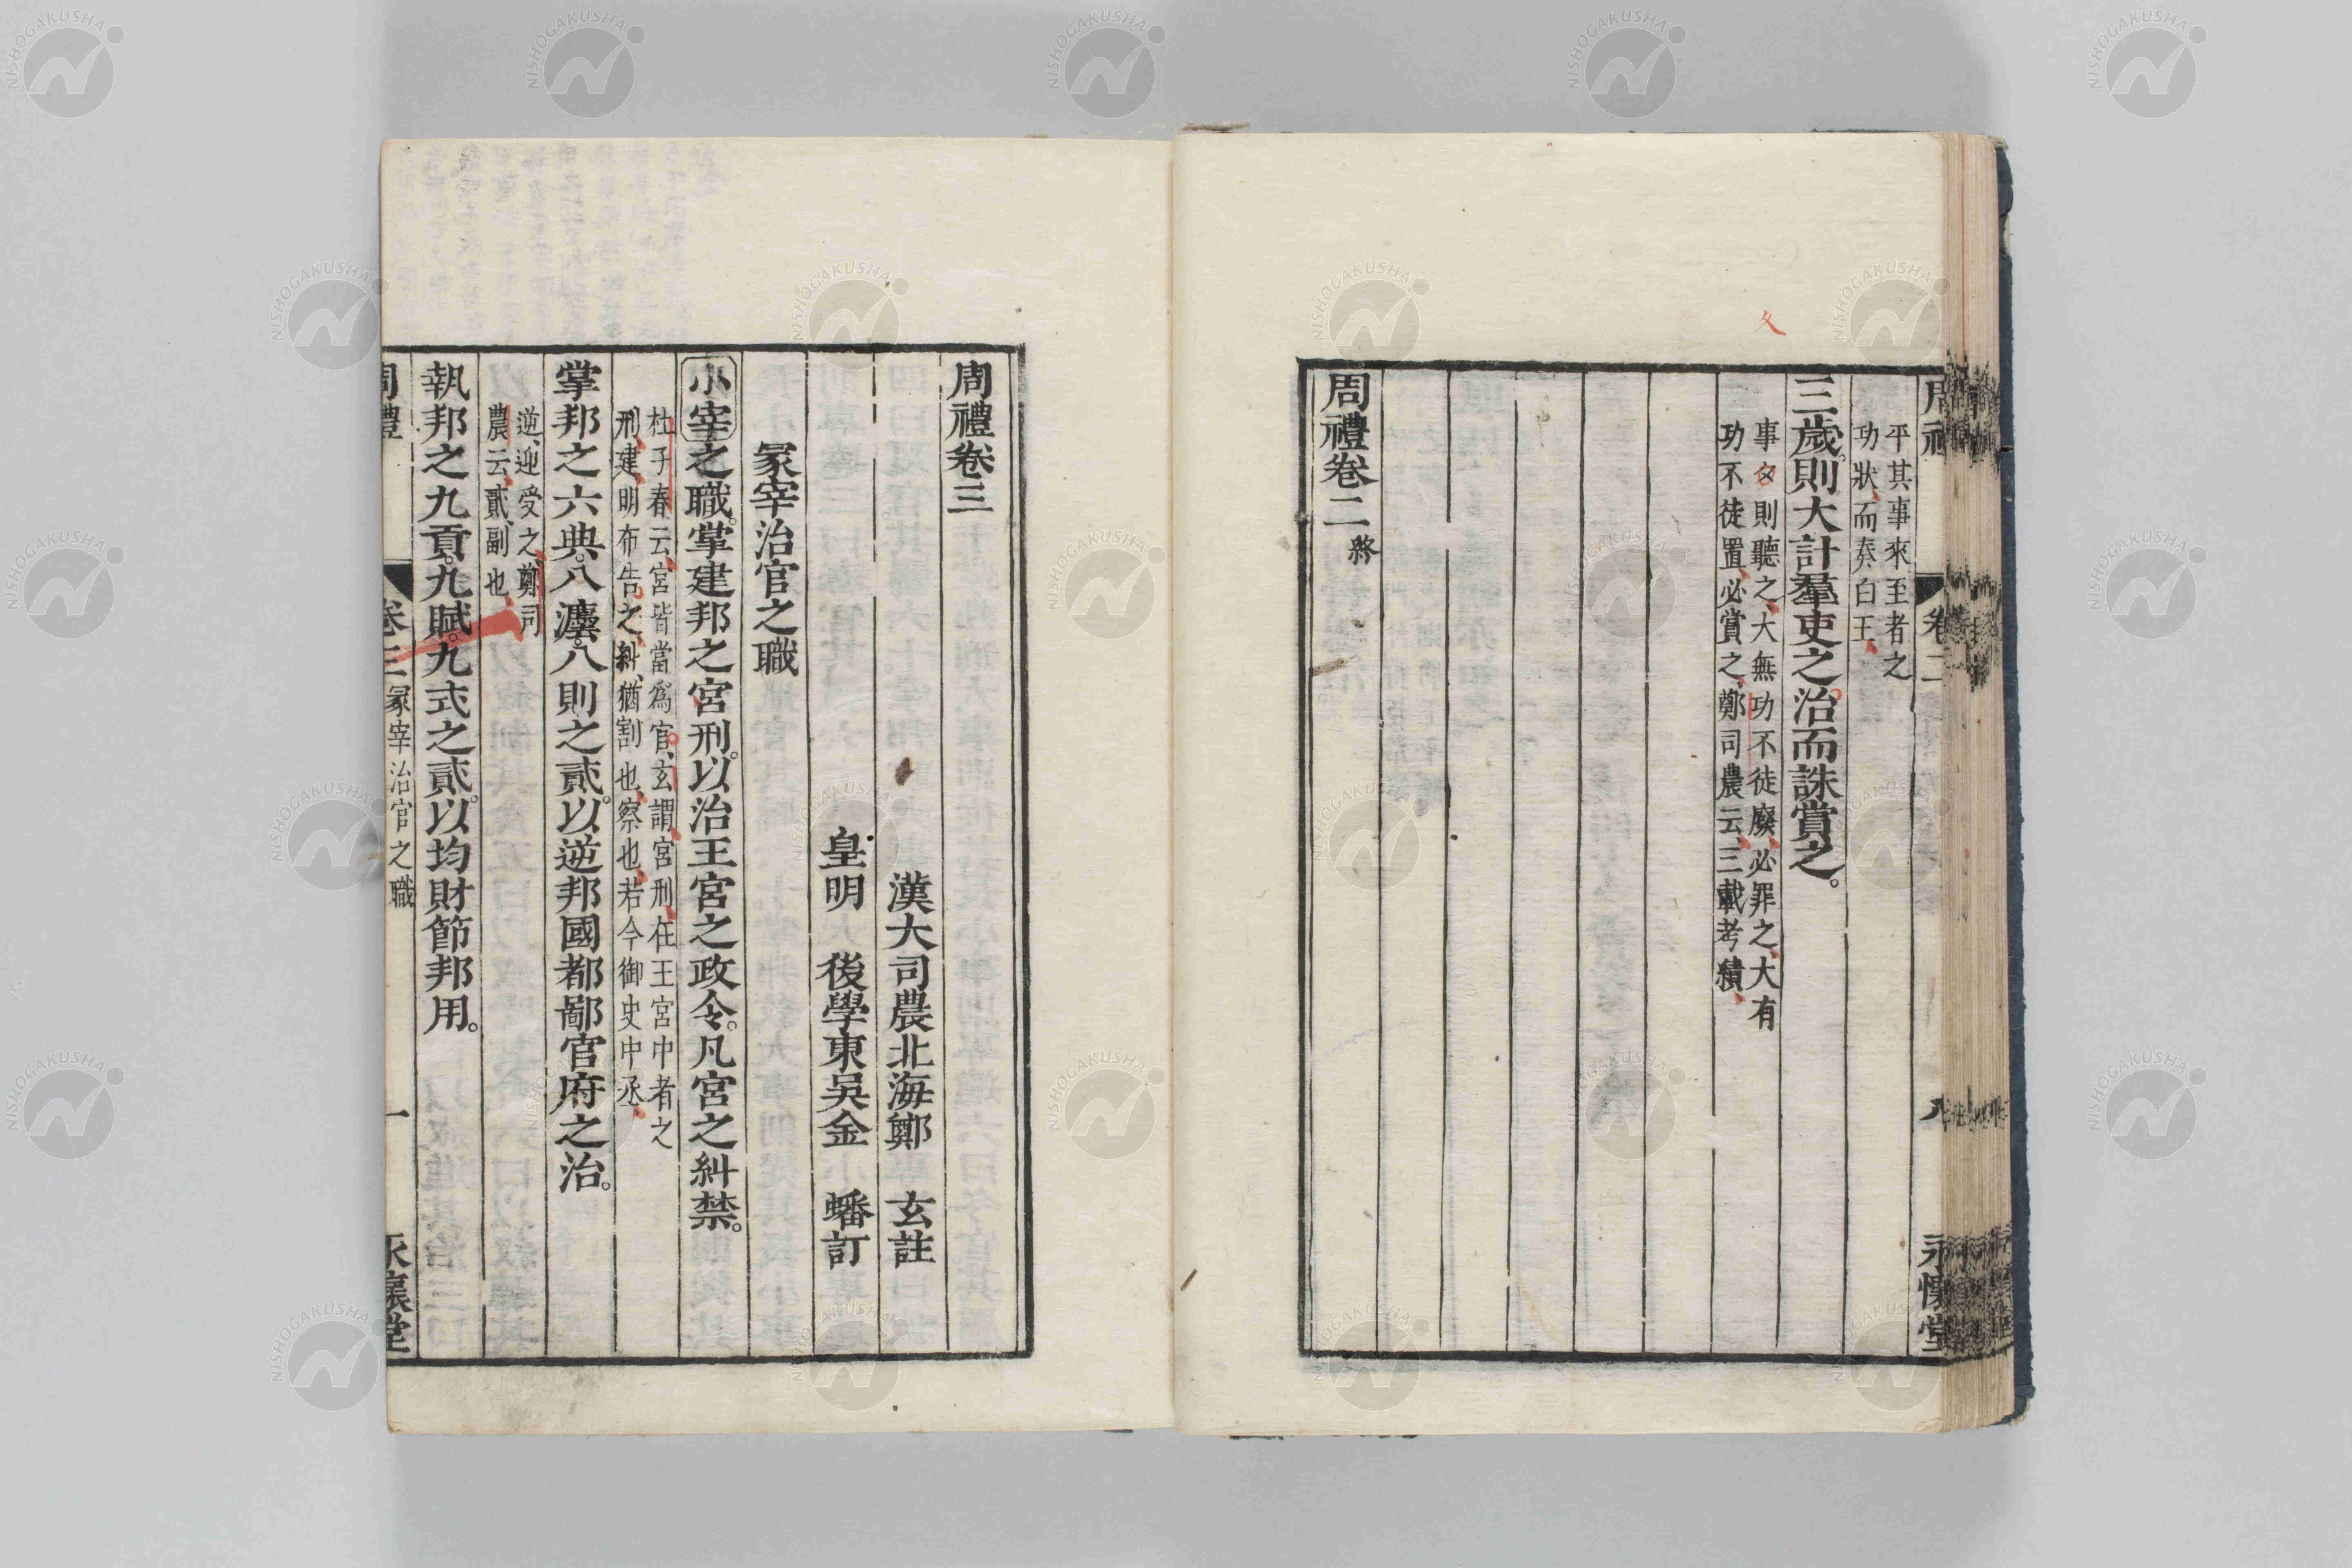 平其事來至者之
功狀而奏白王、
三歲。則大計羣吏之治而誅賞之。
事久則聽之、大無功不徒廢、必罪之、大有
功不徒置、必賞之、鄭司農云、三載考績、
周禮卷二 終
卷二
永懷堂
周禮卷三
漢大司農北海鄭 玄註
皇明 後學東吳金 蟠訂
冡宰治官之職
小宰之職。掌建邦之宮刑。以治王宮之政令。凡宮之糾禁。
杜子春云、宮皆當爲官、玄謂宮刑、在王宮中者之
刑、建、明布告之、糾、猶割也、察也、若今御史中丞、
掌邦之六典。八灋。八則之貳。以逆邦國都鄙官府之治。
逆、迎受之、鄭司
農云、貳、副也、
執邦之九貢。九賦。九式之貳。以均財節邦用。
周禮 卷三 冡宰治官之職 一 永懷堂
NISHOGAKUSHA